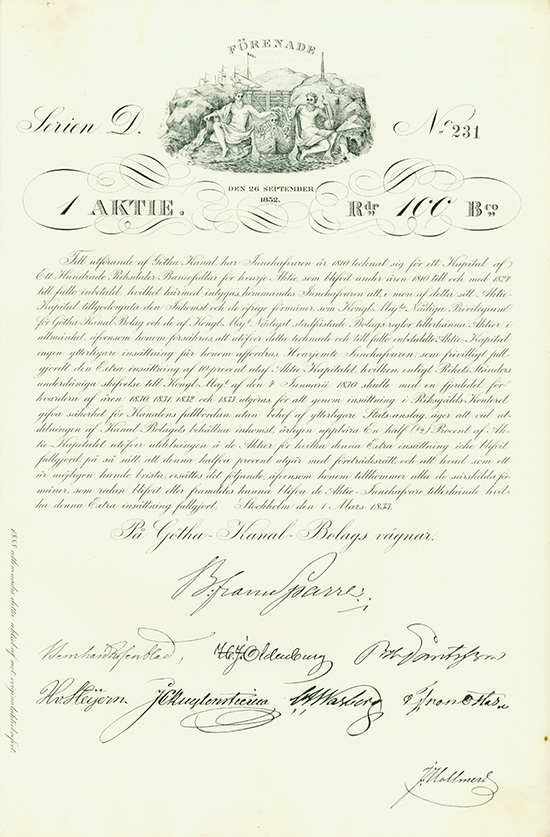 FÖRENADE
Serien D.
No 231
DEN 26 SEPTEMBER
1832.
1 AKTIE.
Rdr 100 Bco
Till utförande af Götha Kanal, har Innehafvaren år 1810 tecknat sig för ett Kapital af
Ett Hundrade Riksdaler Bancosedlar för hvarje Aktie, som blifvit under åren 1810 till och med 1827
till fullo inbetald, hvilket härmed intygas, kommandes Innehafvaren att, i mon af detta sitt Aktie-
Kapital, tillgodonjuta den Inkomst och de öfrige förmåner, som Kongl. Majts Nådiga Privilegium
för Götha Kanal Bolag och de af Kongl. Majt Nådigst stadfästade Bolags reglor tillerkänna Aktier i
allmänhet, äfvensom honom försäkras, att utöfver detta tecknade och till fullo inbetaldte Aktie-Kapital
ingen ytterligare insättning för honom äfordras. Hvarjemte Innehafvaren, som frivilligt full-
gjordt den Extra insättning af 10 procent utaf Aktie Kapitalet, hvilken, enligt Rikets Ständers
underdåniga skrifvelse till Kongl. Majt af den 4 Januarii 1830 skulle med en fjerdedel för
hvardera af åren 1830, 1831, 1832 och 1833 utgöras för att genom insättning i Riksgälds Kontoret
gifva säkerhet för Kanalens fullbordan utan behof af ytterligare Stats-anslag, äger att vid ut-
delningen af Kanal-Bolagets behållna inkomst, årligen uppbära En half (½) Procent af Ak-
tie-Kapitalet utöfver utdelningen å de Aktier för hvilka denna Extra insättning icke blifvit
fullgjord, på så sätt, att denna halfva procent utgår med företrädsrätt, och att hvad som ett
år möjligen kunde brista, ersättes det följande, äfvensom honom tillkommer alla de särskilda för-
måner, som redan blifvit eller framdeles kunna blifva de Aktie-Innehafvare tillerkände, hvil-
ka denna Extra insättning fullgjort. Stockholm den 1 Mars 1833.
På Götha-Kanal-Bolags vägnar.
B. fram Sparre.
Bernhard Rosenblad,
Oldenburg
H. v. Heijern.
Warberg
1888 utlemnades detta aktiebref mot originalaktiebrefvet.